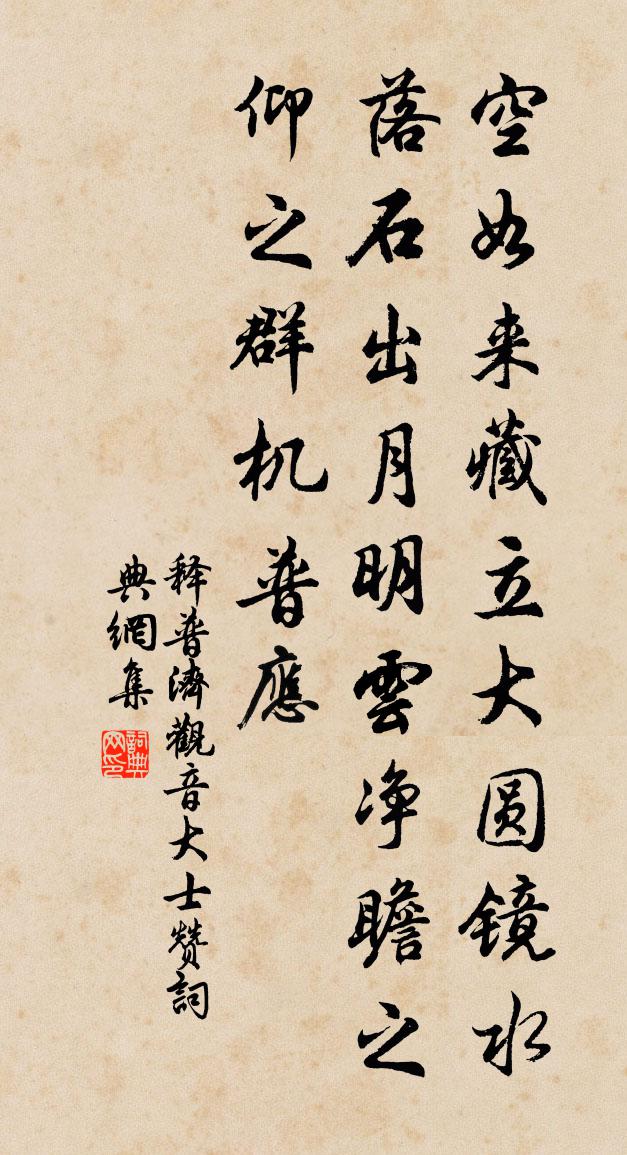 空如来藏立大圆镜水
落石出月明雲净瞻之
仰之群机普應
释普濟觀音大士赞詞
典網集
詞典网印